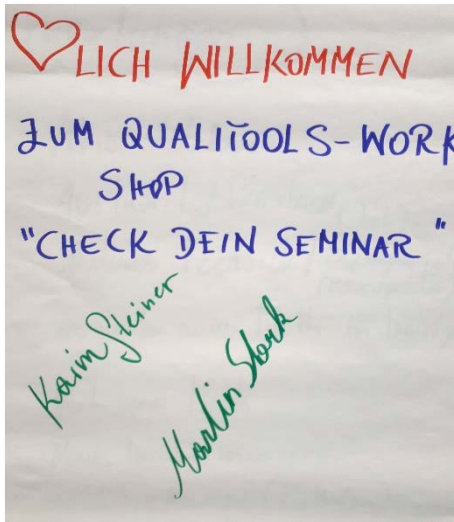 ♡LICH WILLKOMMEN
ZUM QUALITOOLS-WORK
SHOP
"CHECK DEIN SEMINAR"
Karin Steiner
Martin Stark